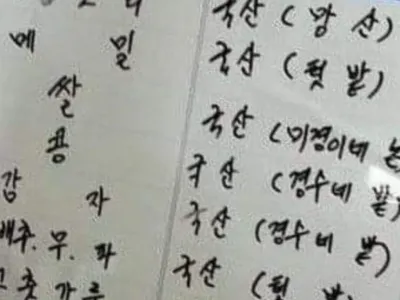 국산 (앞 산)
메 밀 국산 (텃 밭)
쌀 국산 (미경이네
콩 국산 (경수네 밭)
감 자 국산 (경수네 밭)
배추. 무. 파 국산 (텃 밭